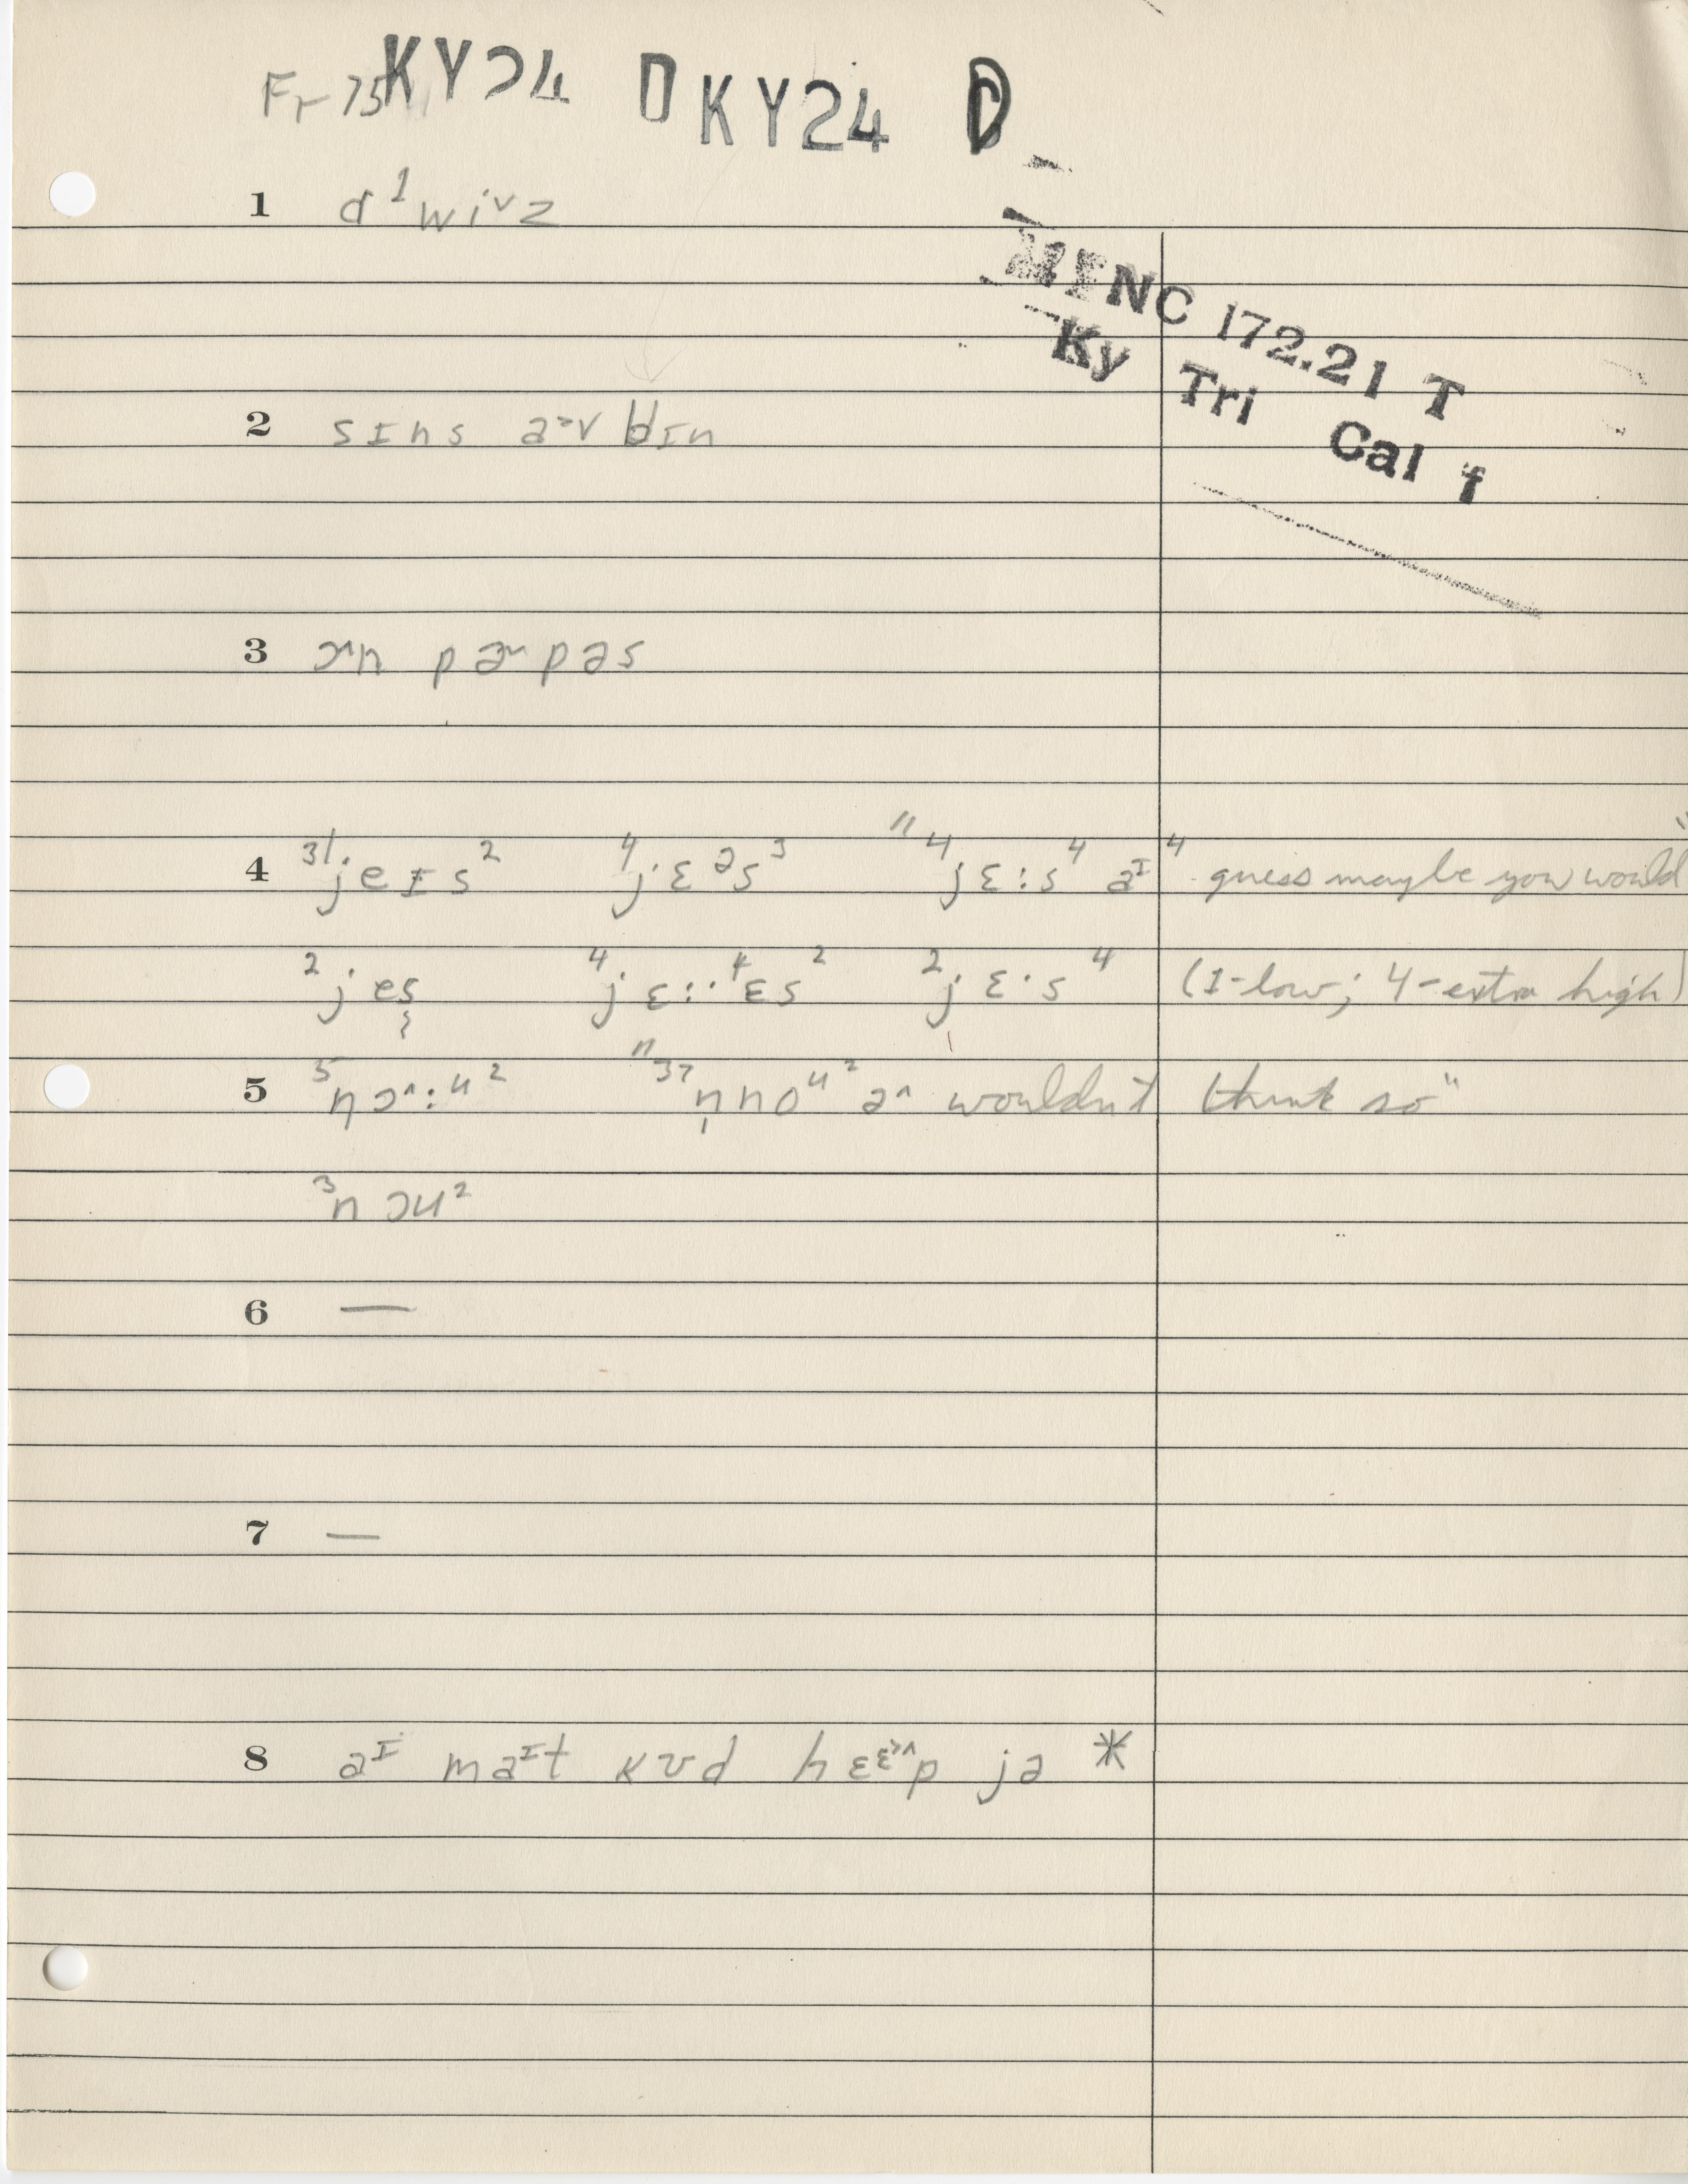 Fr 75 KY24 D KY24 D
1 ɑ¹wiᵛz
MINC 172.21 T
Ky Tri Cal f
2 sɪns ə˃v bɪn
3 ɔ^n pɚpəs
4 ³jeɪs² ⁴jɛəs³ "⁴jɛ:s⁴ aᴵ⁴ guess maybe you would"
²jes ⁴jɛ:·⁴ɛs² ²jɛ·s⁴ (1-low; 4-extra high)
5 ³nɔ^:ᵘ² "³⁷n̩noᵘ² ə^ wouldn't think so"
³nɔu²
6 —
7 —
8 aᴵ maᴵt kʊd hɛɛ˃^p jə *